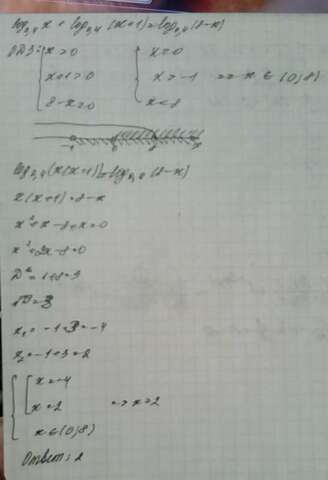 log₀,₄ x + log₀,₄ (x+1) = log₀,₄ (8-x)
ОДЗ: { x>0 { x>0
x+1>0 x>-1 => x ∈ (0;8)
8-x>0 x<8
log₀,₄ (x(x+1)) = log₀,₄ (8-x)
x(x+1) = 8-x
x²+x-8+x=0
x²+2x-8=0
D=1+8=9
√D=3
x₁=-1-3=-4
x₂=-1+3=2
{ [ x=-4
x=2 => x=2
x ∈ (0;8)
Ответ: 2